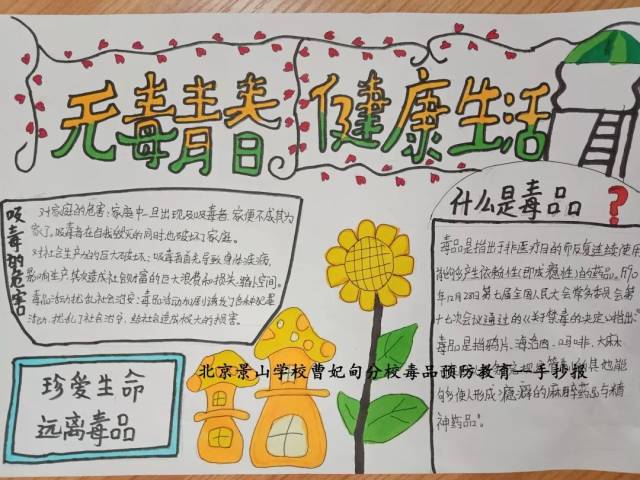 无毒青春 健康生活
吸毒的危害
对家庭的危害:家庭中一旦出现及吸毒者,家便不成其为
家了。吸毒者在自我毁灭的同时,也破坏了家庭。
对社会生产力的巨大破坏:吸毒者首先导致身体疾病,
影响生产,其次造成社会财富的巨大浪费和损失,
毒品活动扰乱社会治安:毒品活动加剧诱发了各种犯罪
活动,扰乱了社会治安,给社会造成极大的损害。
珍爱生命
远离毒品
什么是毒品?
毒品是指出于非医疗目的而反复连续使用
能够产生依赖性(即成瘾性)的药品。
年12月28日第七届全国人民大会常务委员会第
十七次会议通过的《关于禁毒的决定》指出:
毒品是指鸦片、海洛因、吗啡、大麻、
其他能
够使人形成瘾癖的麻醉药品与精
神药品。
北京景山学校曹妃甸分校毒品预防教育—手抄报